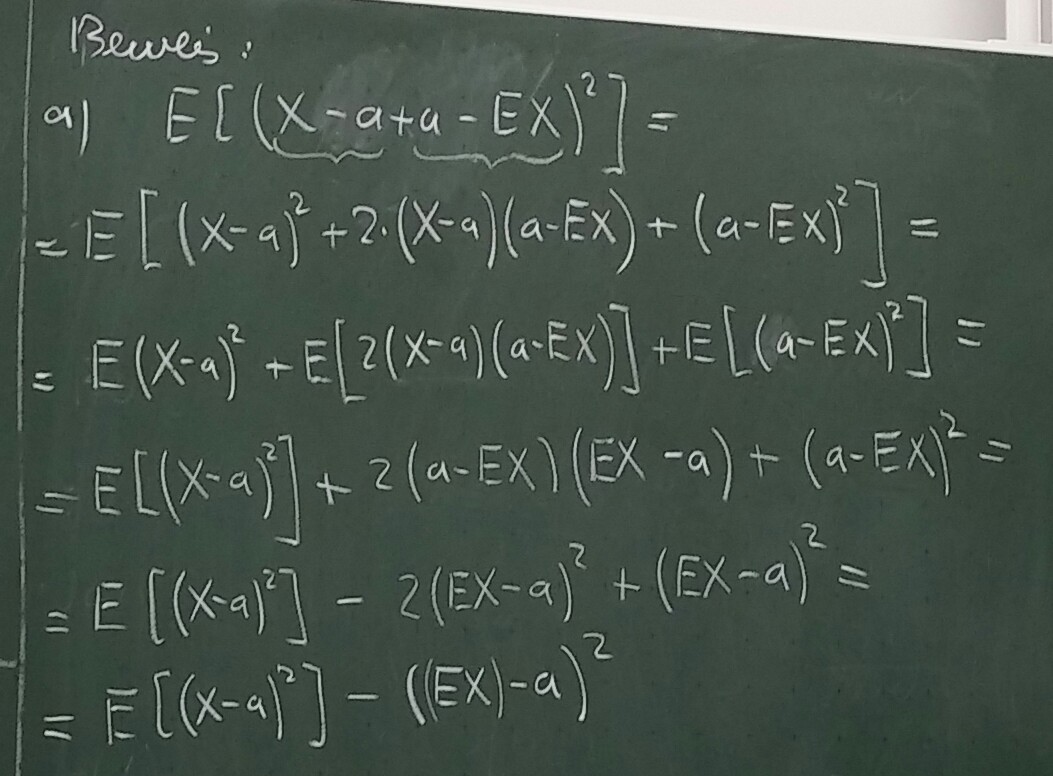 Beweis:
a) E[(X-a+a-EX)²] =
= E[(X-a)²+2·(X-a)(a-EX)+(a-EX)²] =
= E(X-a)² + E[2(X-a)(a-EX)] + E[(a-EX)²] =
= E[(X-a)²] + 2(a-EX)(EX-a) + (a-EX)² =
= E[(X-a)²] - 2(EX-a)² + (EX-a)² =
= E[(X-a)²] - ((EX)-a)²